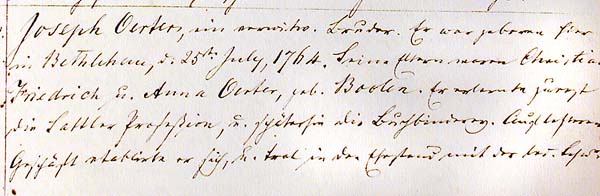 Joseph Oerter, ein verwitw. Bruder. Er war geboren hier
in Bethlehem, d. 25st. July, 1764. Seine Eltern waren Christia.
Friedrich u. Anna Oerter, geb. Boolen. Er erlernte zuerst
die Sattler Profession, u. späterhin die Buchbinderey. Auf letzteres
Geschäft etablirte er sich, u. trat in den Ehestand mit der led. Schw.